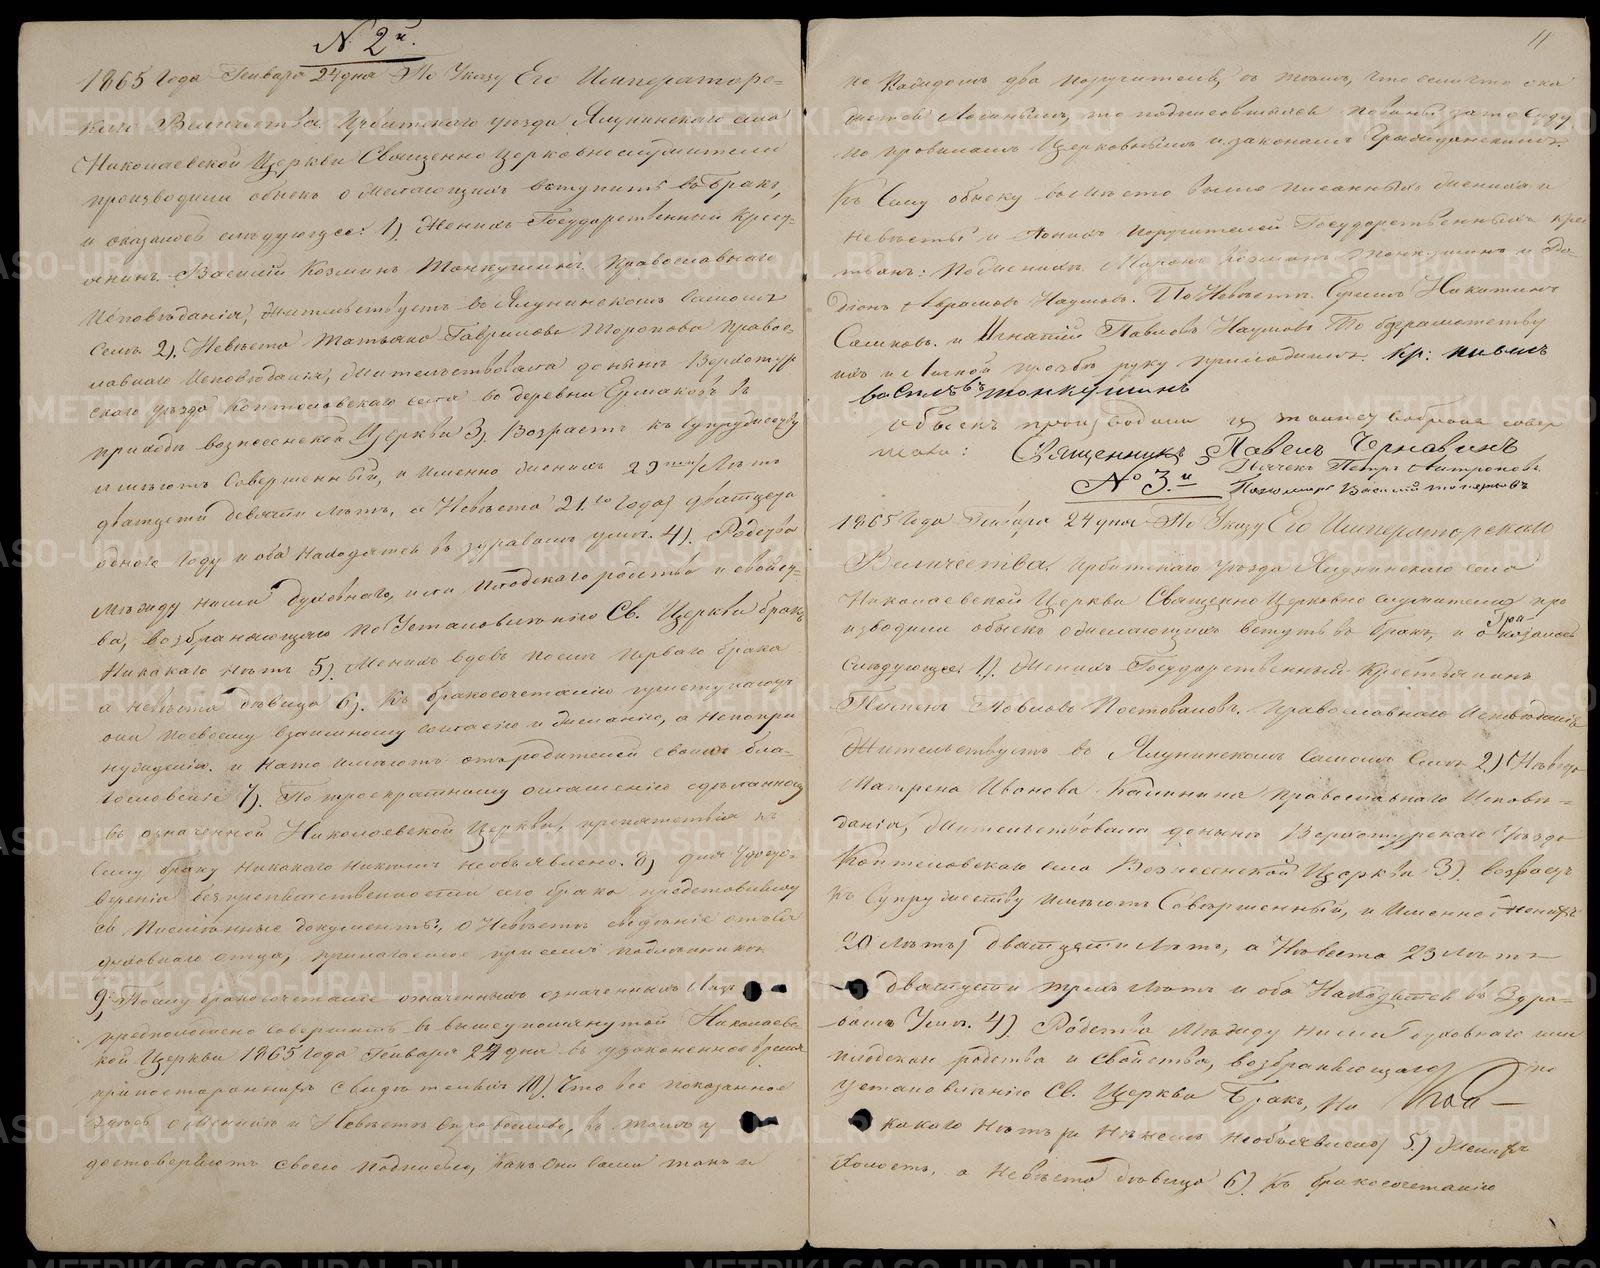 № 2й.
1865 Года Генваря 24 дня По Указу Его Императорс-
каго Величества Ирбитскаго уезда Ялунинскаго села
Николаевской Церкви Священно церковнослужители
производили обыск о желающих вступить в брак,
и оказалось следующее: 1). Жених Государственный Крест-
янин Василий Козмин Тонкушин Православнаго
Исповедания, жительствует в Ялунинском Самом
Селе 2). Невеста Татьяна Гаврилова Торопова Правос-
лавнаго Исповедания, жительствовала доныне Верхотур
скаго уезда Коптеловскаго села в деревни Ермаков в
приходе вознесенской Церкви 3). Возраст к супружеству
имеют Совершенный, и именно жених 29 Лет
двадцети девяти лет, а Невеста 21го года двадцеть
одного году и оба находятся в здравом уме. 4). Родства
между ними духовнаго, или плодскаго родства и свойст-
ва, возбраняющаго по Установлению Св. Церкви брак,
Никакаго нет 5). Жених вдов после перваго брака
а невеста девица 6). К бракосочетанию приступают
они по своему взаимному согласию и желанию, а Непопри
нуждению. и на то имеют от родителей своих бла-
гословение 7). По троекратному оглашению сделанному
в означенной Николаевской Церкви, препятствия к
сему браку Никакого Никем не объявлено. 8) для удосто-
верения безпрепятственности сего брака представляют
ся Письменные документы, о Невесте сведение отъ ея
духовнаго отца, прилагаемое при сем подлинником
9, По сему бракосочетание означенных означенных Лиц
предположено совершить в вышеупомянутой Николаевс-
кой Церкви 1865 Года Генваря 24 дня в узаконенное время
припосторонних свидетелях 10). Что все показанное
здесь о Женихе и Невесте справедливо, в том и у
достоверяют своею подписью, как Они Сами так и
11
по Каждом два Поручителей, в том, что если что ока
жется Ложным, то подписавшиеся повинны за то Суду
по правилам Церковным и законам Гражданским.
К Сему обыску вместо вышеписанных жениха и
невесты и Поних поручителей Государственных крес
тьян: По жених Мирон Козмин Тонкушин и Ро-
дион Абрамов Наумов. По Невесте Ефим Никитин
Сашков. и Игнатий Павлов Наумов По безграмотству
их и личной просьбе руку приложил. кр: павил
василевъ тонкушинъ
Обыск производили и таинство брака совер
шали: Священник Павел Чернавин
Дьячек Петр Митропов
Пономарь Василий
№ 3.й
1865 Года Генваря 24 дня По Указу Его Императорскаго
Величества. Ирбитскаго уезда Ялунинскаго села
Николаевской Церкви Священно Церковно служители про
изводили обыск о желающих вступить в брак, и оказалось
следующее 1). Жених Государственный крестьянин
Пимен Павлов Постовалов. Православнаго Исповедания
Жительствует в Ялунинском Самом Селе 2) Невеста
Матрена Иванова Калинина Православнаго Испове-
дания, Жительствовала доныне Верхотурскаго Уезда
Коптеловскаго села Вознесенской Церкви 3) возраст
к Супружеству имеют Совершенный, и Именно Жених
20 Лет, двадцати Лет, а Невеста 23 Лет
двадцети трех лет и оба Находятся в Здра-
вом Уме. 4) Родства Между ними Духовнаго или
плодскаго родства и свойства, возбраняющаго по
установлению Св. Церкви Брак, Ни
какого Нет 5.) Жених
Холост, а Невеста девица 6) К бракосочетанию